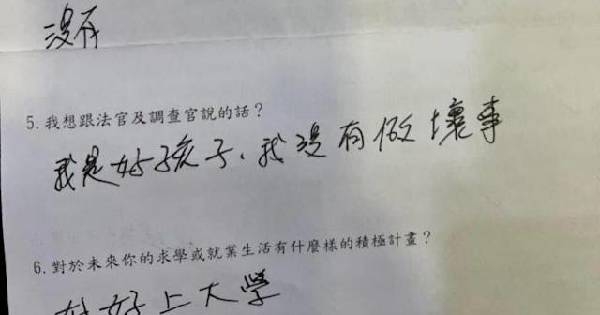 沒有
5.我想跟法官及調查官說的話？
我是好孩子、我沒有做壞事
6.對於未來你的求學或就業生活有什麼樣的積極計畫？
好好上大學